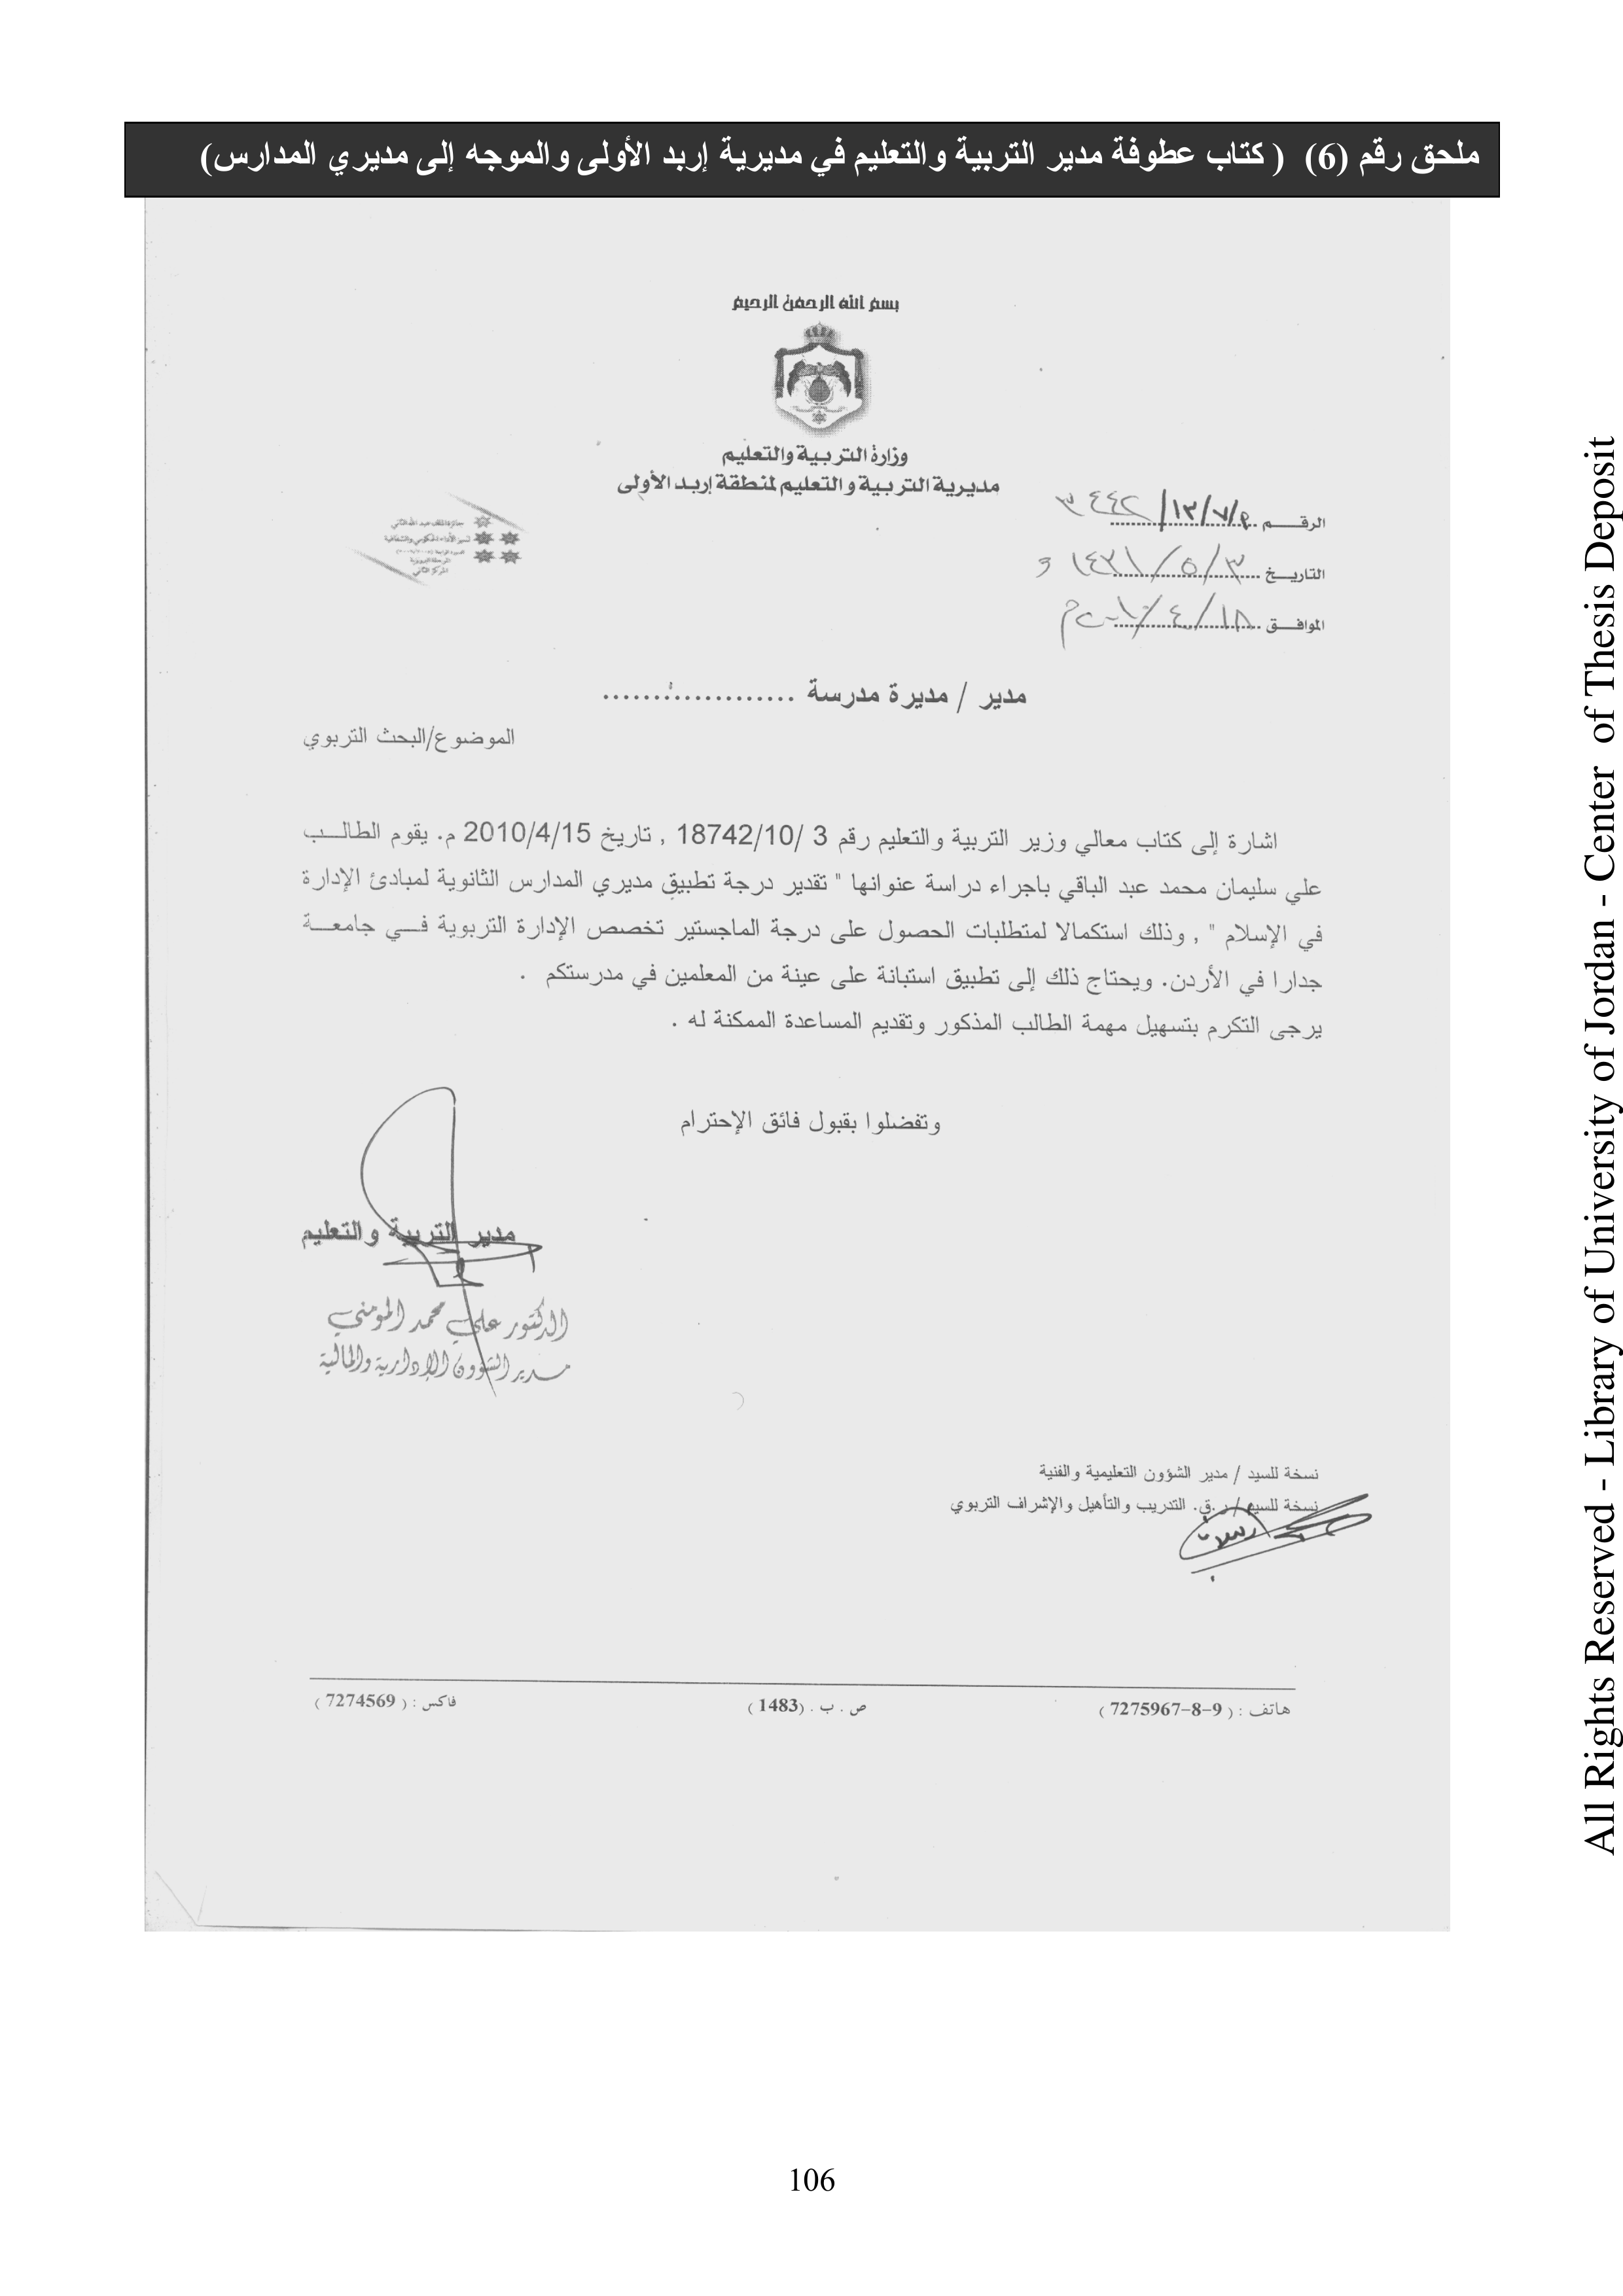 ملحق رقم (6) ( كتاب عطوفة مدير التربية والتعليم في مديرية إربد الأولى والموجه إلى مديري المدارس)
بسم الله الرحمن الرحيم
وزارة التربية والتعليم
مديرية التربية والتعليم لمنطقة إربد الأولى
جائزة الملك عبد الله الثاني
لتميز الأداء الحكومي والشفافية
المركز الثاني
الرقـــم م/١٣/٧/٣٤٤٢
التاريـخ ٣/٥/١٤٣١
الموافـق ١٨/٤/٢٠١٠م
مدير / مديرة مدرسة ...................
الموضوع/البحث التربوي
اشارة إلى كتاب معالي وزير التربية والتعليم رقم 3 /18742/10 , تاريخ 2010/4/15 م. يقوم الطالب
علي سليمان محمد عبد الباقي باجراء دراسة عنوانها " تقدير درجة تطبيق مديري المدارس الثانوية لمبادئ الإدارة
في الإسلام " , وذلك استكمالا لمتطلبات الحصول على درجة الماجستير تخصص الإدارة التربوية في جامعة
جدارا في الأردن. ويحتاج ذلك إلى تطبيق استبانة على عينة من المعلمين في مدرستكم .
يرجى التكرم بتسهيل مهمة الطالب المذكور وتقديم المساعدة الممكنة له .
وتفضلوا بقبول فائق الإحترام
مدير التربية والتعليم
الدكتور علي محمد المومني
مدير الشؤون الإدارية والمالية
نسخة للسيد / مدير الشؤون التعليمية والفنية
نسخة للسيد / ر.ق. التدريب والتأهيل والإشراف التربوي
هاتف : ( 9-8-7275967 )
ص . ب . (1483 )
فاكس : ( 7274569 )
106
All Rights Reserved - Library of University of Jordan - Center of Thesis Deposit